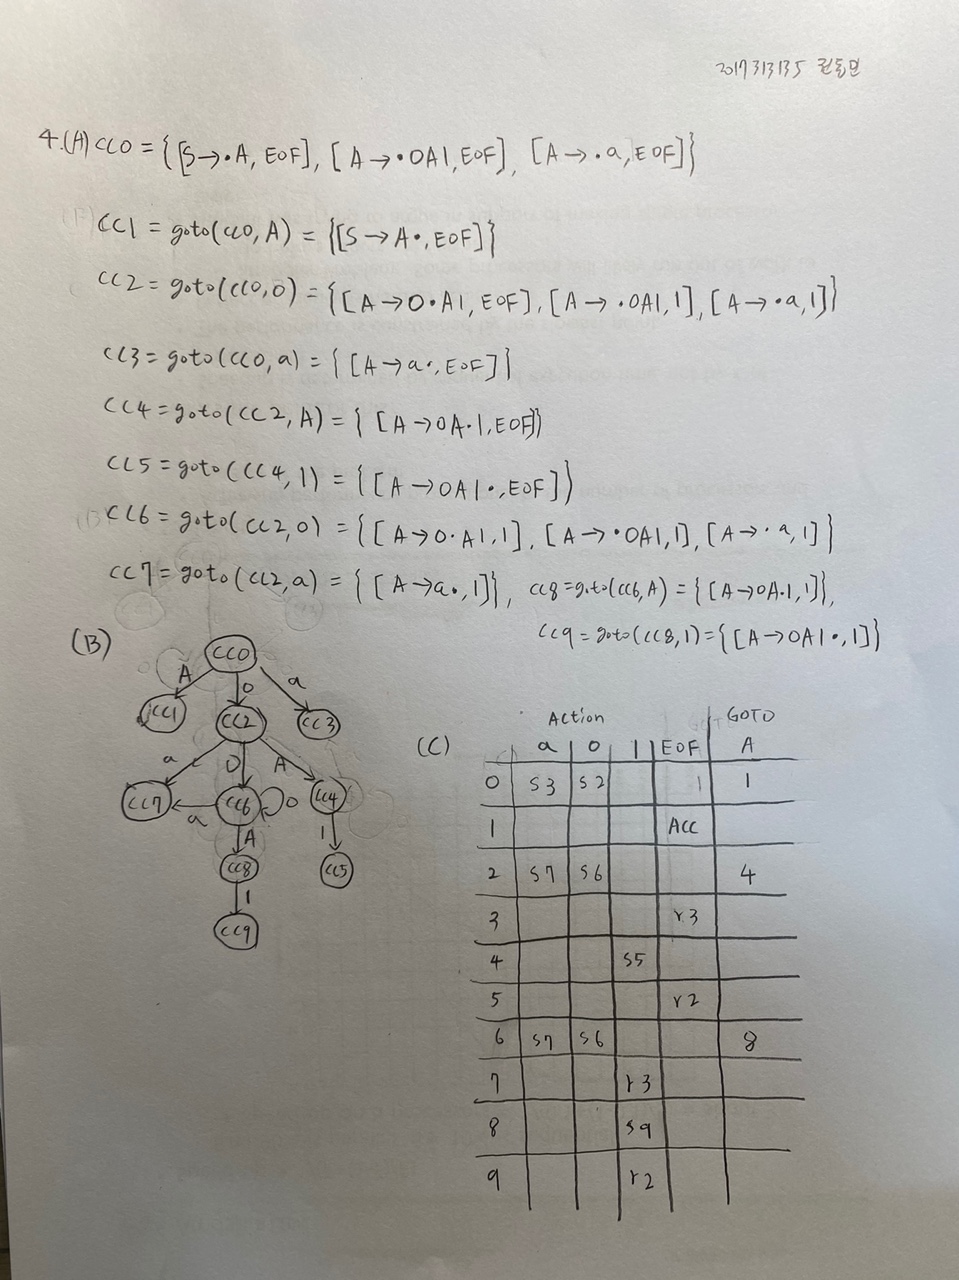 2017313135 권동민
4.(A) CC0 = {[S→·A, EOF], [A→·0A1, EOF], [A→·a, EOF]}
CC1 = goto(CC0, A) = {[S→A·, EOF]}
CC2 = goto(CC0, 0) = {[A→0·A1, EOF], [A→·0A1, 1], [A→·a, 1]}
CC3 = goto(CC0, a) = {[A→a·, EOF]}
CC4 = goto(CC2, A) = {[A→0A·1, EOF]}
CC5 = goto(CC4, 1) = {[A→0A1·, EOF]}
CC6 = goto(CC2, 0) = {[A→0·A1, 1], [A→·0A1, 1], [A→·a, 1]}
CC7 = goto(CC2, a) = {[A→a·, 1]}, CC8 = goto(CC6, A) = {[A→0A·1, 1]},
CC9 = goto(CC8, 1) = {[A→0A1·, 1]}
(B)
CC0
A 0 a
CC1 CC2 CC3
a 0 A
CC7 a CC6 0 CC4
A 1
CC8 CC5
1
CC9
(C)
Action GOTO
a 0 1 EOF A
0 s3 s2 1
1 Acc
2 s7 s6 4
3 r3
4 s5
5 r2
6 s7 s6 8
7 r3
8 s9
9 r2